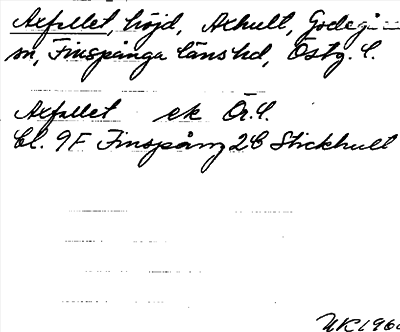 Axfallet, höjd, Axhult, Godegårds
sn, Finspånga läns hd, Östg. l.
Axfallet ek Ör. l.
bl. 9F Finspång 2b Stickhult